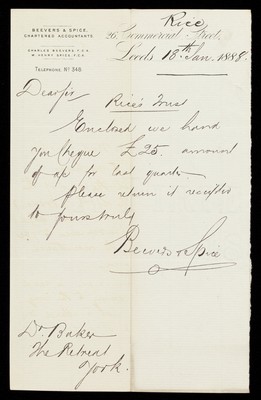 Rice
BEEVERS & SPICE,
CHARTERED ACCOUNTANTS.
CHARLES BEEVERS, F.C.A.
W. HENRY SPICE, F.C.A.
TELEPHONE No 346
26, Commercial Street,
Leeds 18th Jan. 1888.
Dear Sir
Rice's Trust
Enclosed we hand
you Cheque £25. amount
of a/c for last quarter.
Please return it receipted
to Yours truly
Beevers & Spice
Dr. Baker
The Retreat
York.